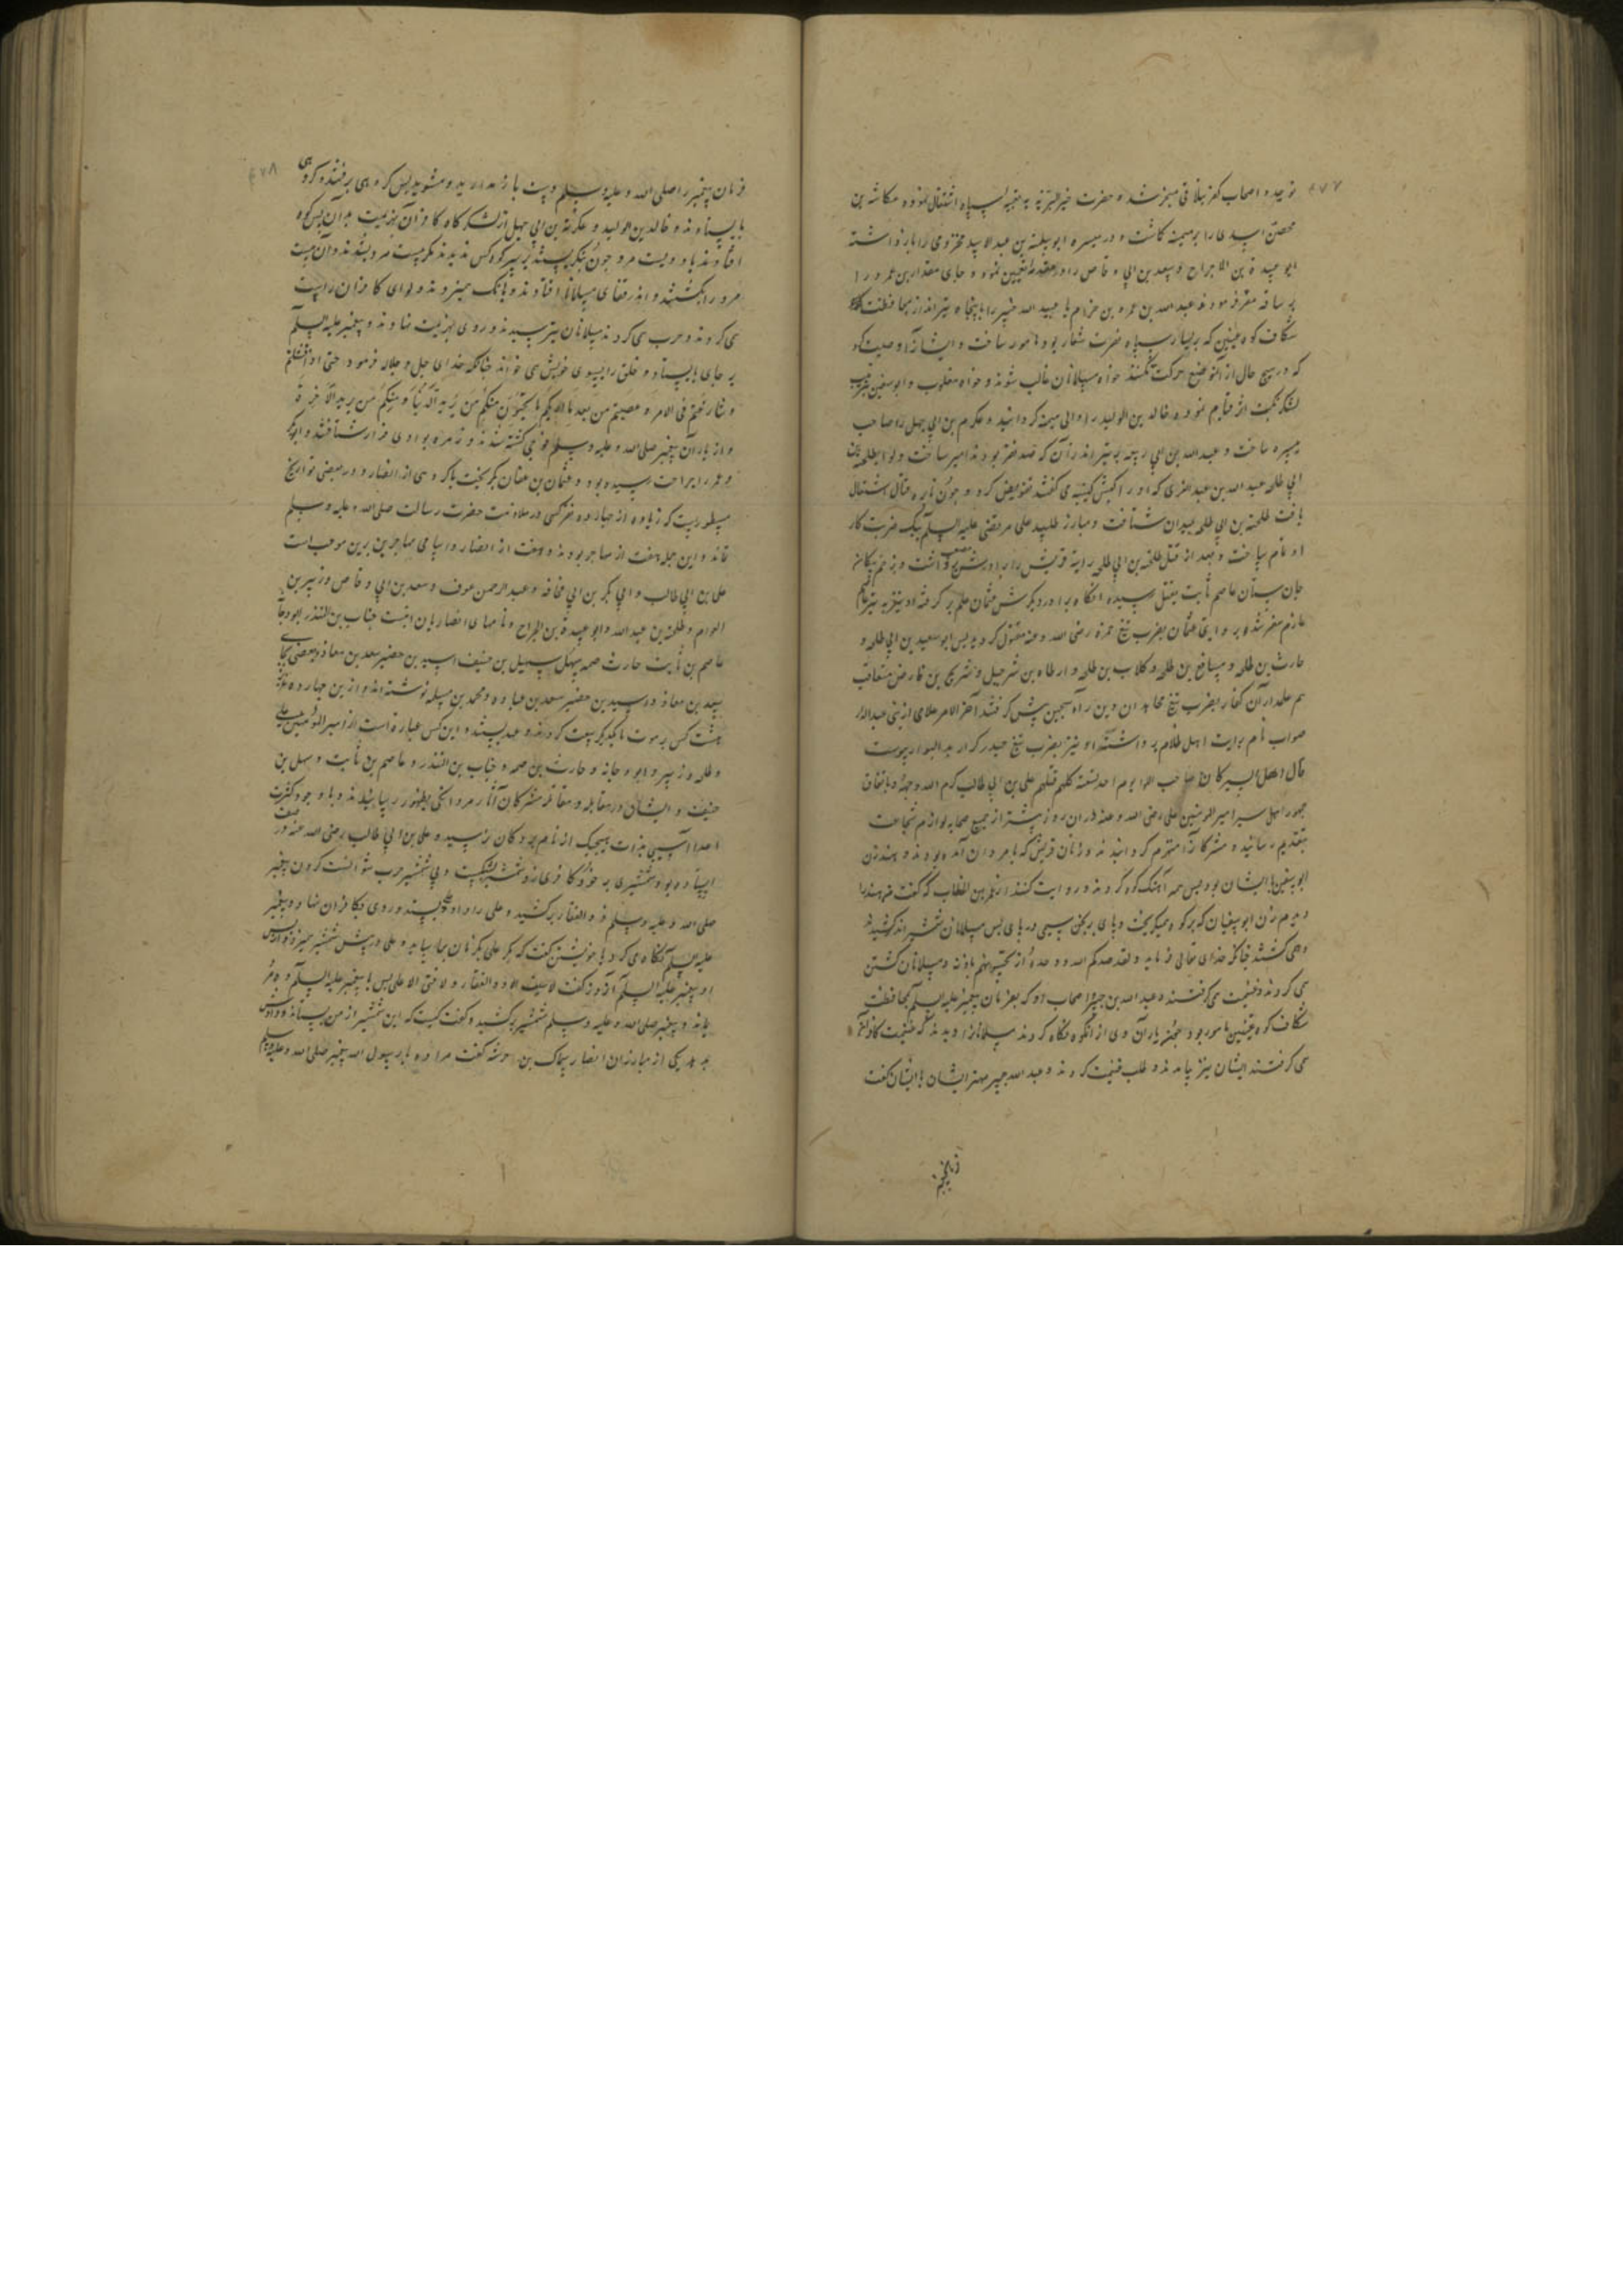 ۴۷۷
توحید و اصحاب کفر بلا فی منجز شد و حضرت خیر البریه به تعبیه سپاه اشتغال نموده عکاشه بن
محصن اسدی را بر میمنه کاشت و در میسره ابو سلمة بن عبد الاسد مخزومی را باز داشته
ابو عبیدة بن الجراح و سعد بن ابی وقاص را در مقدمه تعیین نمود و جای مقداد بن عمرو را
بر ساقه مقرر فرمود و عبد الله بن عمرو بن حزام با عبید الله جبیر را با پنجاه تیرانداز بمحافظت
شکاف کوه عینین که بر یسار سپاه نصرت شعار بود مامور ساخت و ایشانرا وصیت کرد
که در هیچ حال از آن موضع حرکت نکنند خواه مسلمانان غالب شوند و خواه مغلوب و ابو سفین
لشکر نکبت اثر قیام نموده خالد بن الولید را والی میمنه کردانید و عکرمه بن ابی جهل را صاحب
میسره ساخت و عبد الله بن ابی ربیعه بر تیراندازان که صد نفر بودند امیر ساخت و لوا بطلحة بن
ابی طلحه عبد الله بن عبد العزی که او را کبش کتیبه می گفتند تفویض کرد و چون نایره قتال اشتعال
یافت طلحة بن ابی طلحه بمیدان شتافت و مبارز طلبید علی مرتضی علیه السلم بیک ضربت کار
او تمام ساخت و بعد از قتل طلحة بن ابی طلحه رایة قریش را برادرش مصعب برداشت و بزخم تیر
جان ستان عاصم ثابت بقتل رسیده انکاه برادر دیکرش عثمان علم بر کرفته او نیز به تیر عاصم
عازم سقر شد و بروایتی عثمان بضرب تیغ حمزه رضی الله عنه مقتول کردید پس ابو سعید بن ابی طلحه و
حارث بن طلحه و مسافع بن طلحه و کلاب بن طلحه و ارطاه بن شرحبیل و شریح بن قارض متعاقب
هم علمداران کفار بضرب تیغ مجاهدان دین راه سجین پیش کرفتند آخر الامر غلامی از بنی عبد الدار
صواب نام رایت اهل ظلام برداشته او نیز بضرب تیغ حیدر کرار بدار البوار پیوست
قال اهل السیر کان صاحب اللوا یوم احد تسعة کلهم قتلهم علی بن ابی طالب کرم الله وجهه و باتفاق
جمهور اهل سیر امیر المومنین علی رضی الله عنه در ان روز بیشتر از جمیع صحابه لوازم شجاعت
بتقدیم رسانید و مشرکانرا منهزم کردانید و زنان قریش که با مردان آمده بودند و هند زن
ابو سفین با ایشان بود پس همه آهنک کوه کردند و روایت کنند از عمر بن الخطاب که گفت من هند را
دیدم زن ابو سفیان که بر کوه میکریخت و پای برنجن سیمین در پای پس مسلمانان شمشیر اندر کشیدند
و همی کشتند چنانکه خدای تعالی فرماید و لقد صدقکم الله وعده اذ تحسونهم باذنه و مسلمانان کشتن
می کردند و غنیمت می کرفتند و عبد الله بن جبیر و اصحاب او که بفرمان پیغمبر علیه السلم بمحافظت
شکاف کوه عینین مامور بودند یاران وی از ان کوه نکاه کردند مسلمانانرا دیدند که غنیمت کافران
می کرفتند ایشان نیز بیامدند و طلب غنیمت کردند و عبد الله جبیر مهتر ایشان با ایشان گفت
۴۷۸
فرمان پیغمبر را صلی الله علیه وسلم دست باز مدارید و مشوید پس کروهی برفتند و کروهی
بایستادند و خالد بن الولید و عکرمة بن ابی جهل از لشکرکاه کافران بهزیمت بدان پس کوه
افتادند با دویست مرد چون بنکریستند بر سر کوه کس ندیدند مکر بیست مرد بشدند و آن بیست
مرد را بکشتند و اندر قفای مسلمانان افتادند و بانک میزدند و لوای کافران راست
می کردند و حرب می کردند مسلمانان بترسیدند و روی بهزیمت نهادند و پیغمبر علیه السلم
بر جای بایستاد و خلق را بسوی خویش می خواند چنانکه خدای جل و جلاله فرمود حتی اذا فشلتم
و تنازعتم فی الامر و عصیتم من بعد ما اریکم ما تحبون منکم من یرید الدنیا و منکم من یرید الآخرة
و از یاران پیغمبر صلی الله علیه وسلم فوجی کشته شدند و زمره بوادی فرار شتافتند و ابوبکر
و عمر را جراحت رسیده بود و عثمان بن عفان بکریخت با کروهی از انصار و در بعضی تواریخ
مسطوریست که زیاده از چهارده نفر کسی در ملازمت حضرت رسالت صلی الله علیه وسلم
نماند و این جمله هفت از مهاجر بودند و هفت از انصار و اسامی مهاجرین برین موجب است
علی بن ابی طالب و ابی بکر بن ابی قحافه و عبد الرحمن عوف و سعد بن ابی وقاص و زبیر بن
العوام و طلحة بن عبد الله و ابو عبیدة بن الجراح و نامهای انصاریان اینست حباب بن المنذر ابو دجانه
عاصم بن ثابت حارث صمه سهل بن حنیف اسید بن حضیر سعد بن معاذ و بعضی بجای
سعد بن معاذ و اسید بن حضیر سعد بن عباده و محمد بن مسلمه نوشته اند و ازین چهارده نفر
هشت کس بر موت با یکدیکر بیعت کردند و عهد بستند و این کس عبارة است از امیر المومنین علی
و طلحه و زبیر و ابو دجانه و حارث بن صمه و حباب بن المنذر و عاصم بن ثابت و سهل بن
حنیف و ایشان در مقابله و مقاتله مشرکان آثار مردانکی بظهور رسانیدند و با وجود کثرت
اعدا آسیبی بذات هیچیک از نام بردکان نرسید و علی بن ابی طالب رضی الله عنه در صف
ایستاده بود و شمشیری بر خود کافری زد شمشیر بشکست و بی شمشیر حرب نتوانست کردن پیغمبر
صلی الله علیه وسلم ذو الفقار برکشید و علی را داد علی بستد و روی بکافران نهاد و پیغمبر
علیه السلم نکاه می کرد با خویشتن گفت که مکر علی بکر نان بهارسیاید و علی در پیش شمشیر میزد و از پس
او پیغمبر علیه السلم آواز گفت لا سیف الا ذو الفقار و لا فتی الا علی پس با پیغمبر علیه السلم ده مرد
ماند و پیغمبر صلی الله علیه وسلم شمشیر برکشید و گفت کیست که این شمشیر از من بستاند و دادش
بدهد یکی از مبارزان انصار سماک بن خرشه گفت مرا ده یا رسول الله پیغمبر صلی الله علیه وسلم